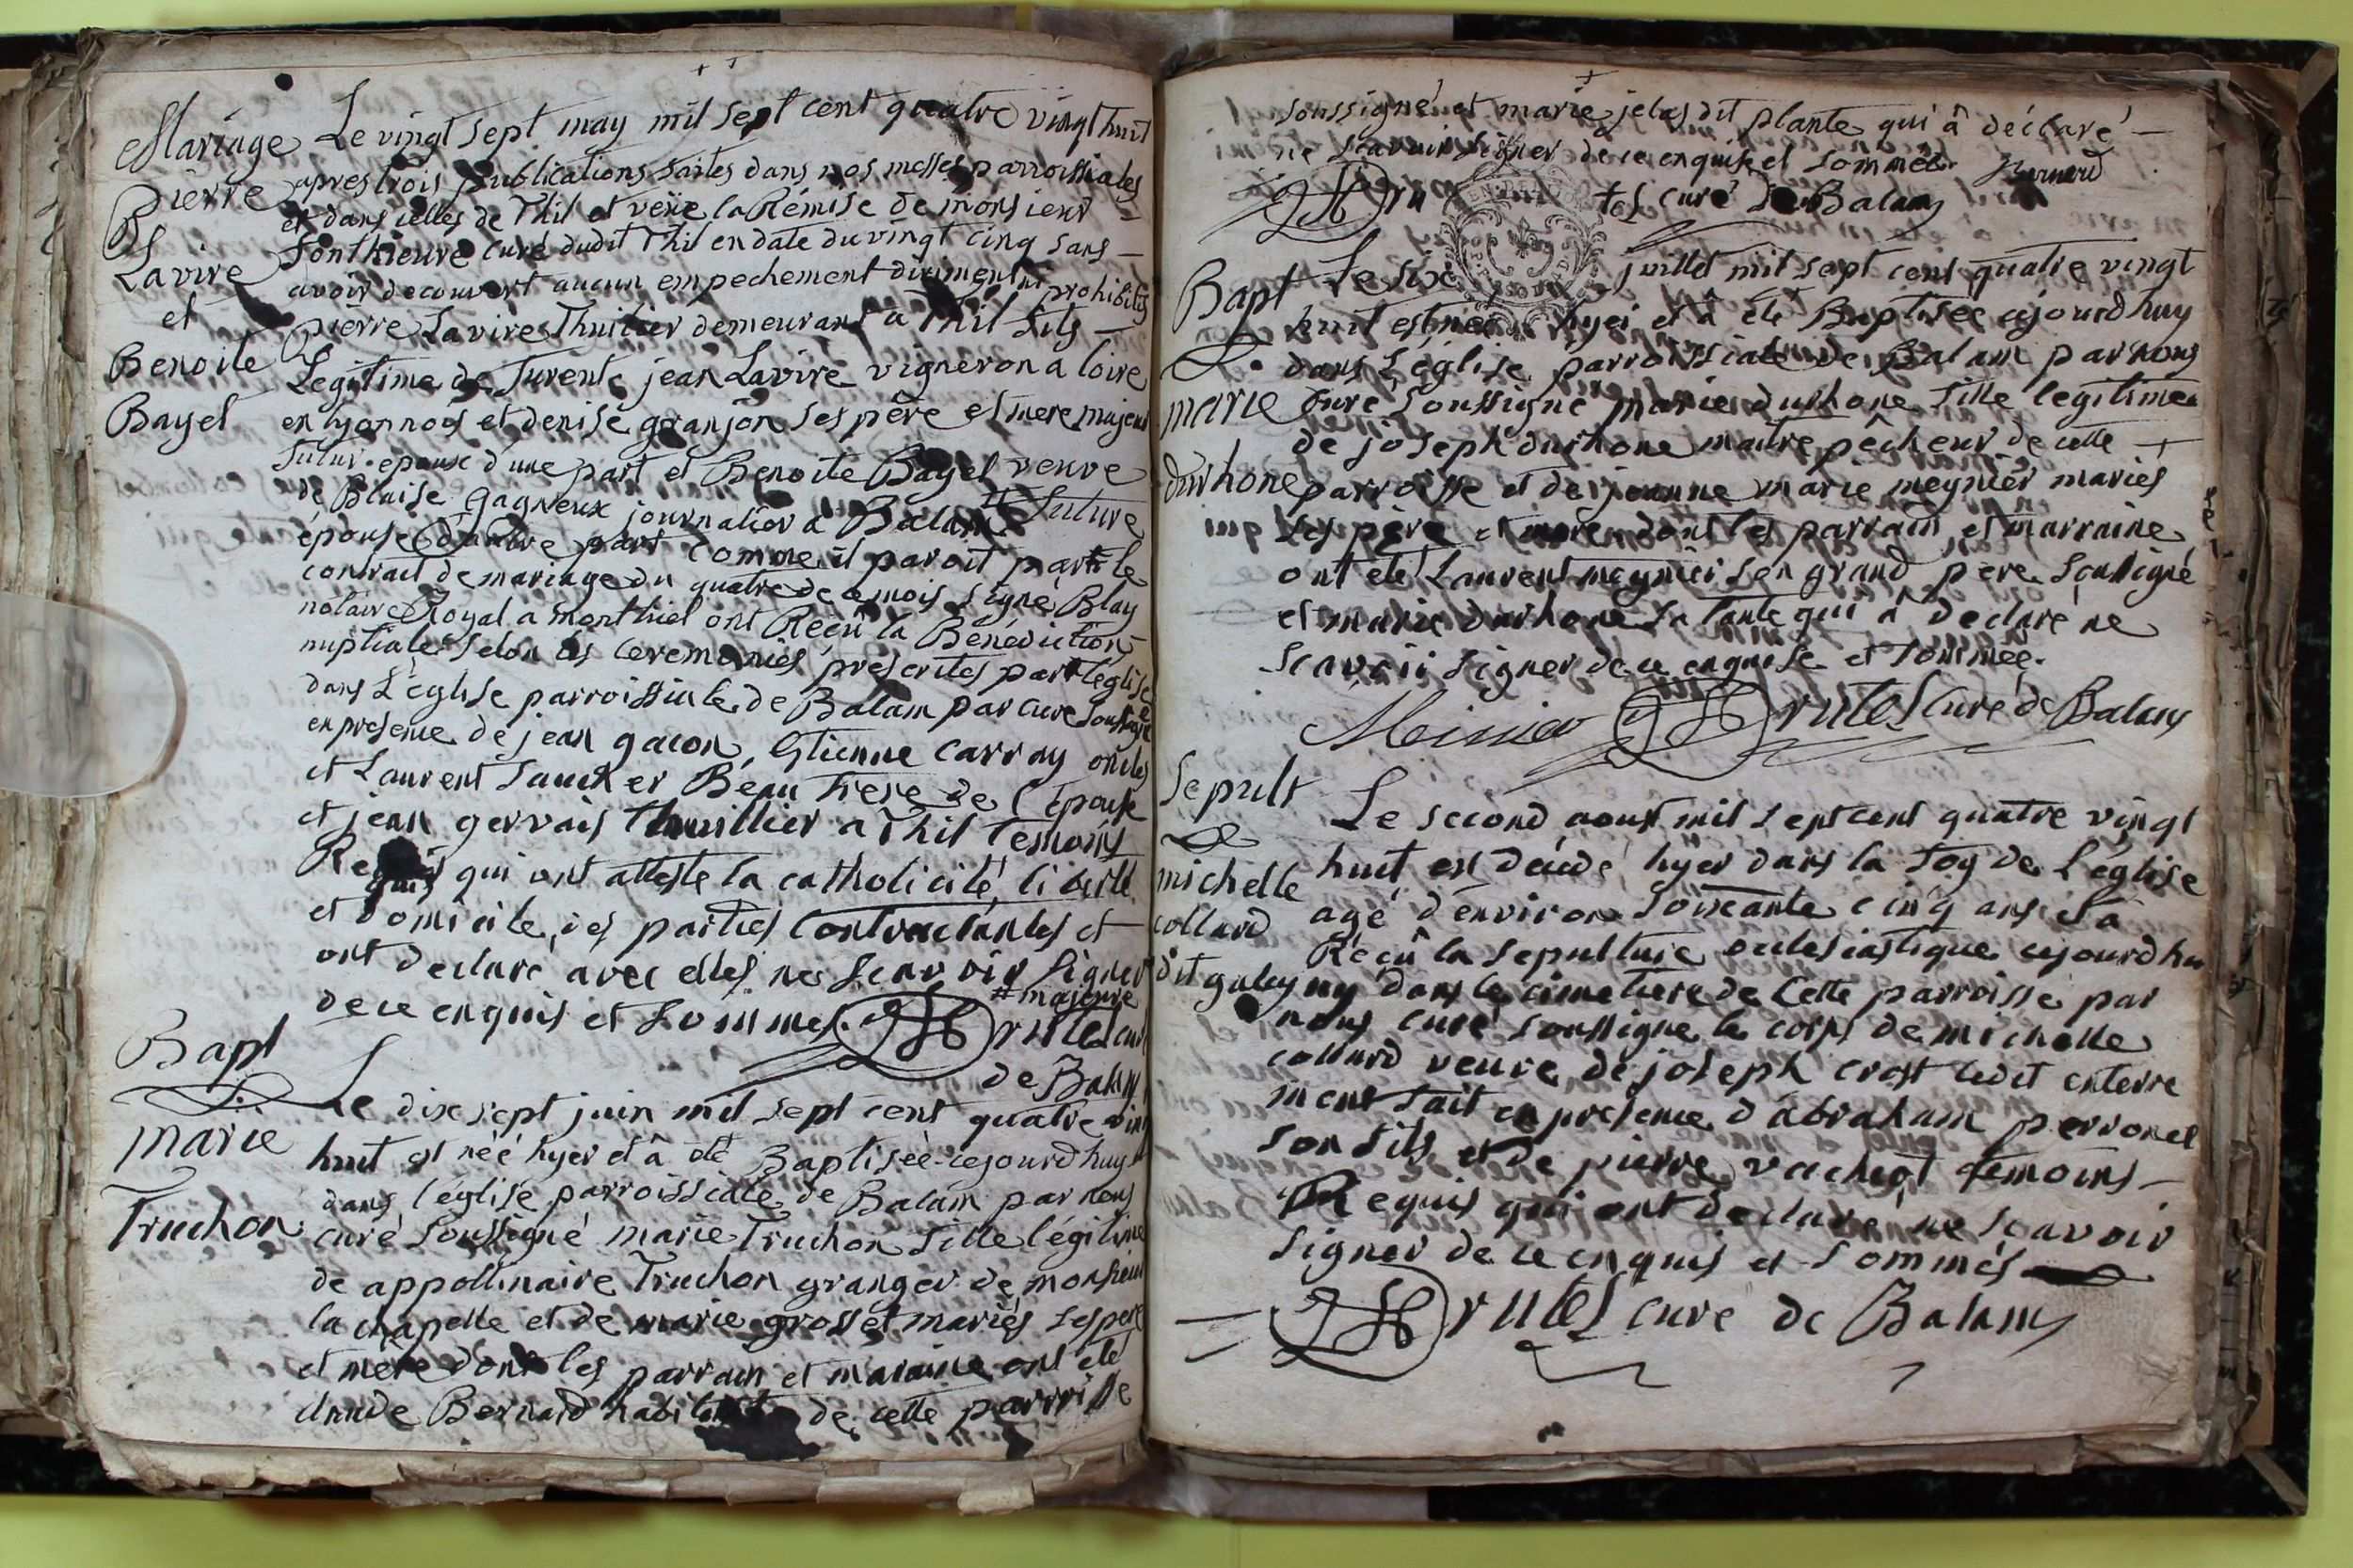 Mariage Le vingt sept may mil sept cent quatre vingt huit
Pierre apres trois publications faites dans nos messes parroissiales
et dans celles de Thil et veüe la Rémise de monsieur
Ponthieuvre curé dudit Thil en date du vingt cinq sans
Lavire avoir decouvert aucun empechement diriment ni prohibitif
et pierre Lavire Thuilier demeurant a Thil fils
Benoite Legitime de jean Lavire vigneron a loire
Bayet en lyonnois et denise granjon ses père et mere majeur
futur epoux d'une part et Benoite Bayet veuve
de Blaise gagneux journalier a Balam # future
épouse d'autre part comme il paroit par le
contrait de mariage du quatre de ce mois signé Blay
notaire Royal a montluel ont Reçu la Bénédiction
nuptiale selon les ceremonies prescrites par l'église
dans L'église parroissiale de Balam par curé soussigné
en presence de jean gacon, Etienne carray oncles
et Laurent faucher Beau frere de l'épouse
et jean gervais thuillier a Thil temoins
Requis qui ont atteste la catholicité, liberté
et domicile, des parties contractantes et
ont declaré avec elles ne scavoir signer
de ce enquis et sommes. # majeure
Brutes curé
de Balam
Bapt
Le dix sept juin mil sept cent quatre vingt
marie huit est néé hyer et â été Baptisée cejourd'huy
dans l'église parroissiale de Balam par nous
Truchon curé soussigné marie Truchon fille légitime
de appollinaire Truchon granger de monsieur
la chapelle et de marie grosset mariés ses pere
et mère dont les parrain et maraine ont été
claude Bernard habitant de cette parroisse
soussigné et marie jelas dit plante qui â déclaré
ne scavoir signer de ce enquise et sommée. Bernard
Brutes curé de Balam
Bapt Le six juillet mil sept cent quatre vingt
huit est née hyer et â été Baptisée cejourd'huy
dans L'église parroissiale de Balam par nous
marie curé soussigné marie durhone fille legitime
de joseph durhone maitre pêcheur de cette
durhone parroisse et de jeanne marie meynier mariés
ses père et mere dont les parrain et marraine
ont été Laurent meynier son grand pere soussigné
et marie durhone sa tante qui â declaré ne
scavoir signer de ce enquise et sommée.
Meinier Brutes curé de Balam
Sepult
Le second aoust mil sept cent quatre vingt
michelle huit est décédé hyer dans la foy de L'église
collard agé d'environ soixante cinq ans et â
Réçu la sepulture ecclesiastique cejourdhuy
dit galey dans le cimetiere de cette parroisse par
nous curé soussigné le corps de michelle
collard veuve de joseph crost ledit enterre
ment fait en presence d'abraham perronet
son fils et de pierre vachot temoins
Requis qui ont declaré ne scavoir
signer de ce enquis et sommés
Brutes curé de Balam